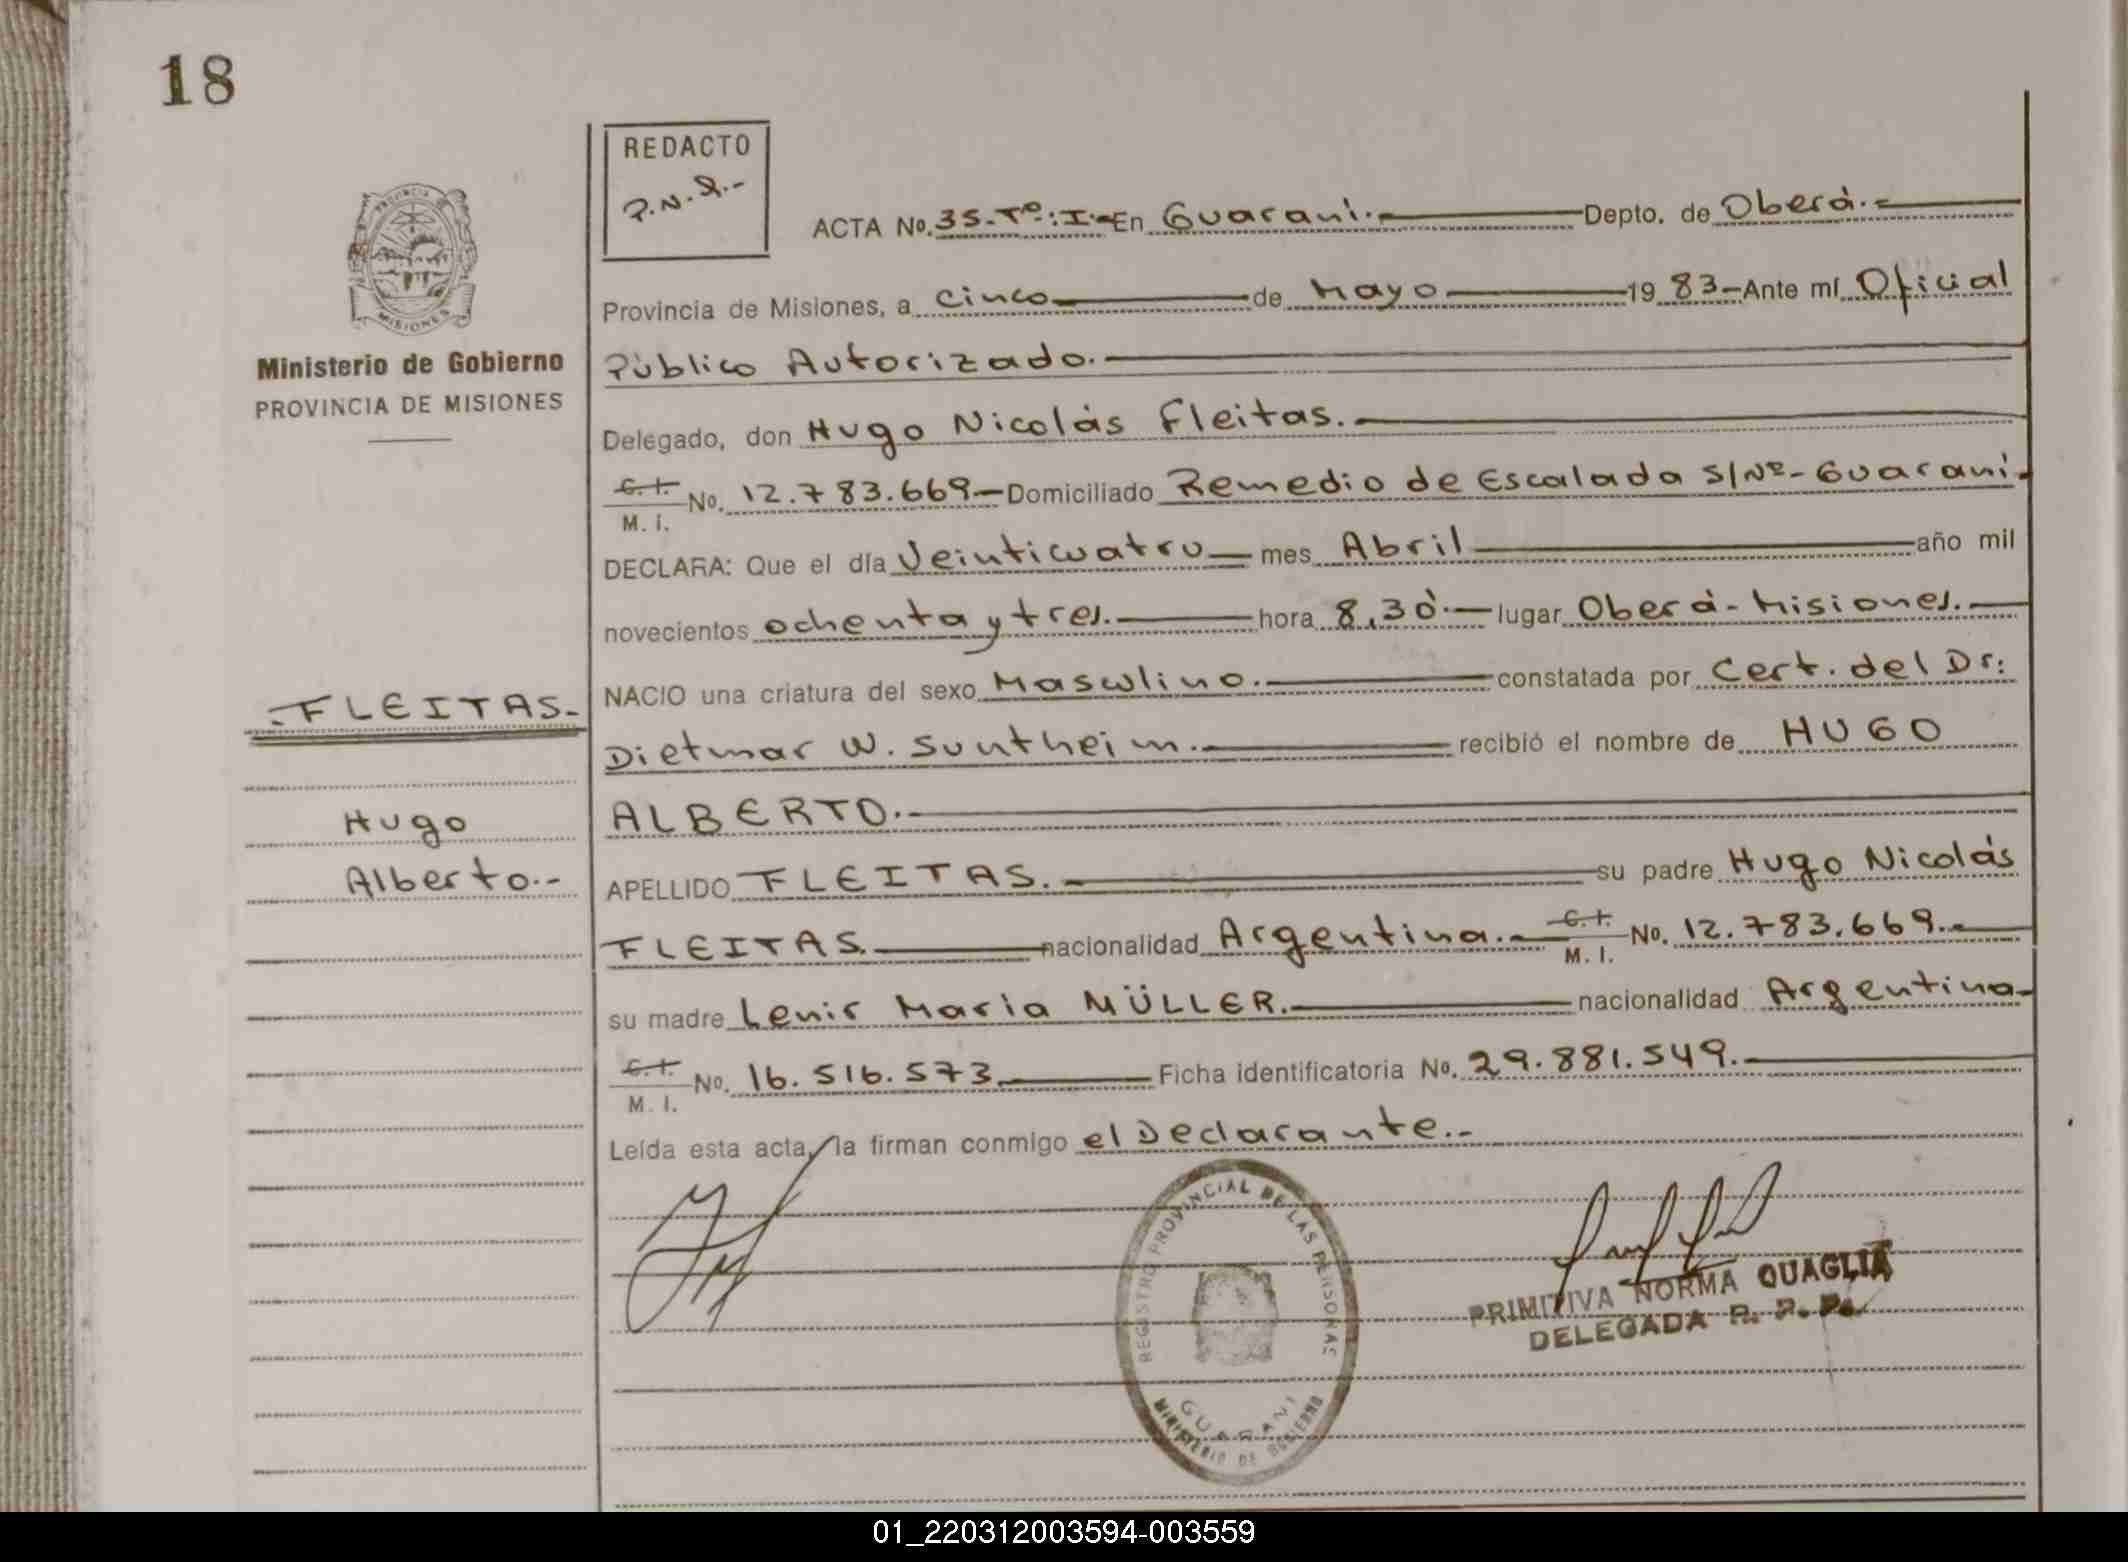 18
REDACTO
P.N.Q.-
PROVINCIA
MISIONES
Ministerio de Gobierno
PROVINCIA DE MISIONES
ACTA No. 35-Tº:I.- En Guaraní. Depto. de Oberá.-
Provincia de Misiones, a cinco de Mayo 19 83- Ante mí Oficial
Público Autorizado.
Delegado, don Hugo Nicolás Fleitas.
C.I. M. I. No. 12.783.669- Domiciliado Remedio de Escalada S/Nº- Guaraní.
DECLARA: Que el día Veinticuatro mes Abril año mil
novecientos ochenta y tres. hora 8,30 lugar Oberá-Misiones.
NACIO una criatura del sexo Masculino. constatada por Cert. del Dr:
Dietmar W. Suntheim. recibió el nombre de HUGO
ALBERTO.
APELLIDO FLEITAS. su padre Hugo Nicolás
FLEITAS. nacionalidad Argentina.- C.I. M. I. No. 12.783.669.
su madre Lenir Maria MÜLLER. nacionalidad Argentina-
C.I. M. I. No. 16.516.573 Ficha identificatoria No. 29.881.549.
Leída esta acta, la firman conmigo el Declarante.-
-FLEITAS-
Hugo
Alberto.-
REGISTRO PROVINCIAL DE LAS PERSONAS
GUARANI
MINISTERIO DE GOBIERNO
PRIMITIVA NORMA QUAGLIA
DELEGADA R. P. P.
01_220312003594-003559